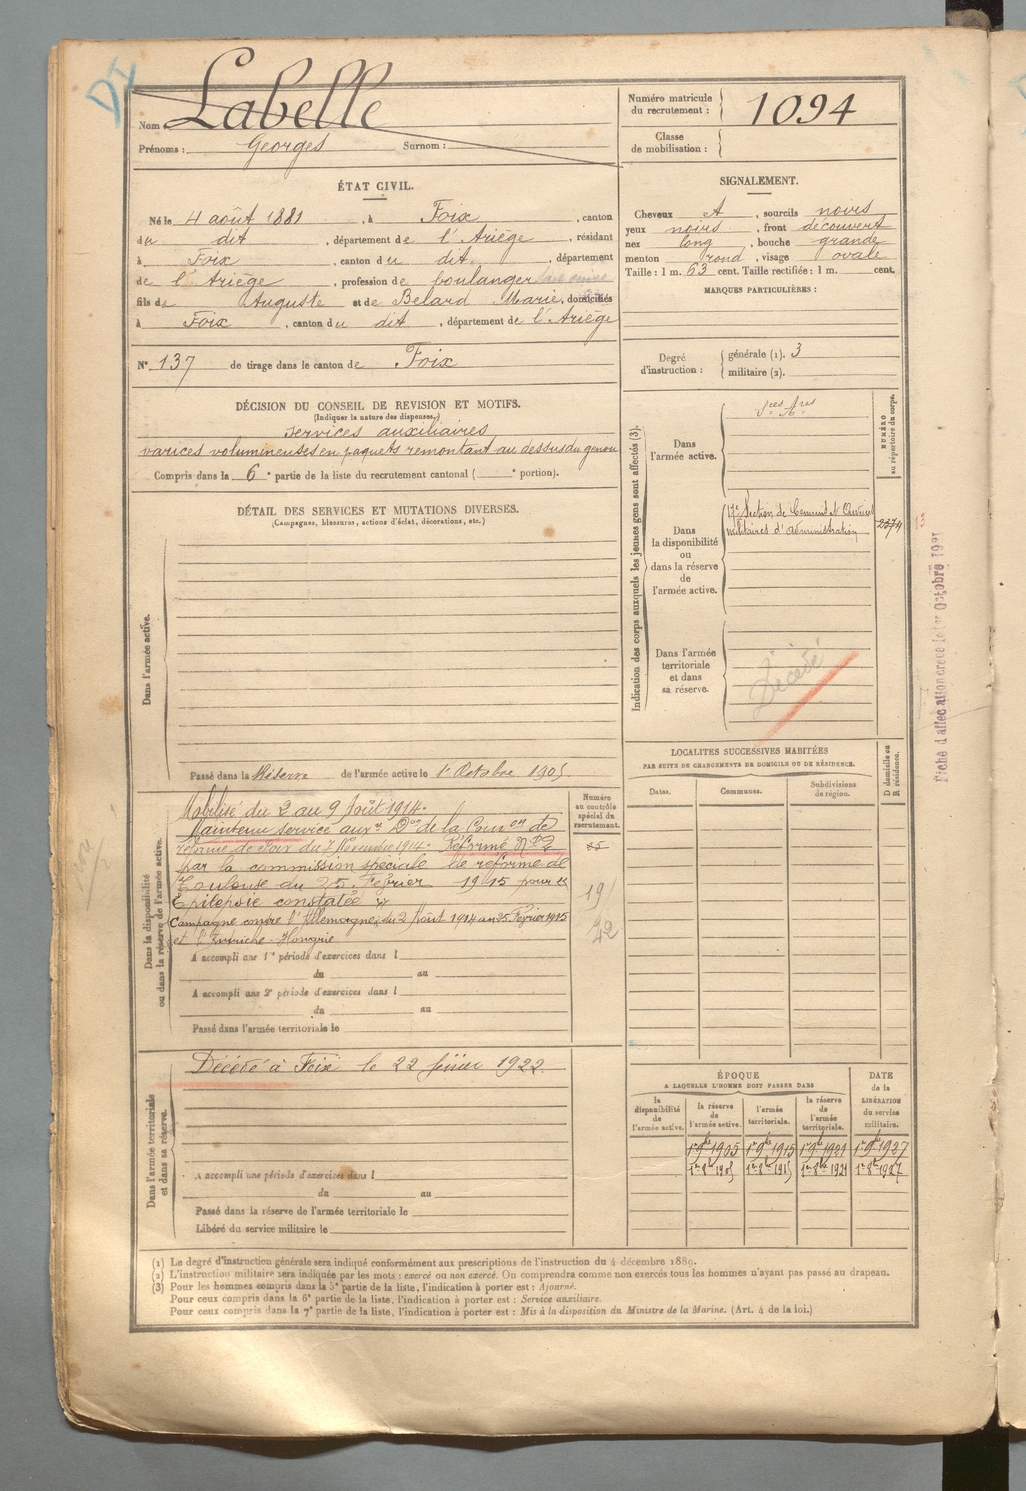 Nom : Labelle
Prénoms : Georges Surnom :
Numéro matricule
du recrutement : 1094
Classe
de mobilisation :
ÉTAT CIVIL.
Né le 4 août 1881, à Foix, canton
du dit, département de l'Ariège, résidant
à Foix, canton du dit, département
de l'Ariège, profession de boulanger
fils de Auguste et de Belard Marie, domiciliés
à Foix, canton du dit, département de l'Ariège
N° 137 de tirage dans le canton de Foix
SIGNALEMENT.
Cheveux, sourcils noirs
yeux noirs, front découvert
nez long, bouche grande
menton rond, visage ovale
Taille : 1 m. 63 cent. Taille rectifiée : 1 m. cent.
MARQUES PARTICULIÈRES :
Degré
d'instruction :
générale (1). 3
militaire (2).
DÉCISION DU CONSEIL DE REVISION ET MOTIFS.
(Indiquer la nature des dispenses.)
services auxiliaires
varices volumineuses en paquets remontant au dessus du genou
Compris dans la 6e partie de la liste du recrutement cantonal ( e portion).
DÉTAIL DES SERVICES ET MUTATIONS DIVERSES.
(Campagnes, blessures, actions d'éclat, décorations, etc.)
Dans l'armée active.
Passé dans la Réserve de l'armée active le 1er Octobre 1905.
Indication des corps auxquels les jeunes gens sont affectés (3).
NUMÉRO
au répertoire du corps.
Dans
l'armée active.
Sces Ares
Dans
la disponibilité
ou
dans la réserve
de
l'armée active.
17e Section de Commis et Ouvriers
militaires d'administration
Dans l'armée
territoriale
et dans
sa réserve.
Décédé
Fiche d'affectation créée le 1er Octobre 1921
LOCALITÉS SUCCESSIVES HABITÉES
PAR SUITE DE CHANGEMENTS DE DOMICILE OU DE RÉSIDENCE.
Dates.
Communes.
Subdivisions
de région.
D domicile ou
R résidence.
Dans la disponibilité
ou dans la réserve de l'armée active.
Numéro
au contrôle
spécial du
recrutement.
Mobilisé du 2 au 9 Août 1914.
Maintenu service auxre Don de la Comon de
réforme de Foix du 7 Novembre 1914. Réformé N° 2
par la commission spéciale de réforme de
Toulouse du 25 Février 1915 pour
Epilepsie constatée
Campagne contre l'Allemagne, du 2 Août 1914 au 25 Février 1915
et l'Autriche-Hongrie
A accompli une 1re période d'exercices dans l
du au
A accompli une 2e période d'exercices dans l
du au
Passé dans l'armée territoriale le
Dans l'armée territoriale
et dans sa réserve.
Décédé à Foix le 22 février 1922.
A accompli une période d'exercices dans l
du au
Passé dans la réserve de l'armée territoriale le
Libéré du service militaire le
ÉPOQUE
A LAQUELLE L'HOMME DOIT PASSER DANS
DATE
de la
LIBÉRATION
du service
militaire.
la
disponibilité
de
l'armée active.
la réserve
de
l'armée active.
l'armée
territoriale.
la réserve
de
l'armée
territoriale.
1er 9bre 1905 1er 9bre 1915 1er 9bre 1921 1er 9bre 1927
1er 8bre 1905 1er 8bre 1915 1er 8bre 1921 1er 8bre 1927
(1) Le degré d'instruction générale sera indiqué conformément aux prescriptions de l'instruction du 4 décembre 1889.
(2) L'instruction militaire sera indiquée par les mots : exercé ou non exercé. On comprendra comme non exercés tous les hommes n'ayant pas passé au drapeau.
(3) Pour les hommes compris dans la 5e partie de la liste, l'indication à porter est : Ajourné.
Pour ceux compris dans la 6e partie de la liste, l'indication à porter est : Service auxiliaire.
Pour ceux compris dans la 7e partie de la liste, l'indication à porter est : Mis à la disposition du Ministre de la Marine. (Art. 4 de la loi.)